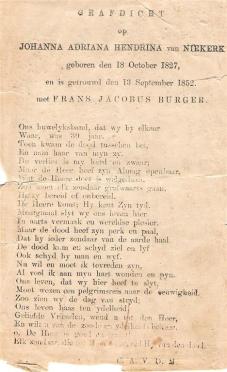 GRAFDICHT
op
JOHANNA ADRIANA HENDRINA van NIEKERK
geboren den 18 October 1827,
en is getrouwd den 13 September 1852.
met FRANS JACOBUS BURGER.
Ons huwelyksband, dat wy by elkaar
Ware, was 39 jaar.
Toen kwam de dood tusschen bei,
En nam haar van myn zy.
De verlies is my hard en zwaar;
Maar de Heer heef zyn
Wat de Heere doet is
Hatzy bereid of onbereid.
De Heere komt; Hy kam Zyn tyd.
Menigmaal slyt wy ons leven hier
In aarts vermaak en werelds plesier.
Maar de dood heef zyn perk en paal,
Dat hy ieder zondaar van de aarde haal
De dood kom en schei ziel en lyf
Ook schyd hy man en wyf.
Nu wil en moet ik tevreden zyn,
Al voel ik aan myn hart wonden en pyn.
Ons leven, dat wy hier beef te slyt,
Moet wezen een pelgrimsreis naar de eeuwigheid.
Zoo zien wy de dag van stryd;
Ons leven haas ten yldelheid
Geliefde Vrienden, wend u tot den Heer,
En wil u van de zonde
Elk zondaar
C. A. V. D. M.